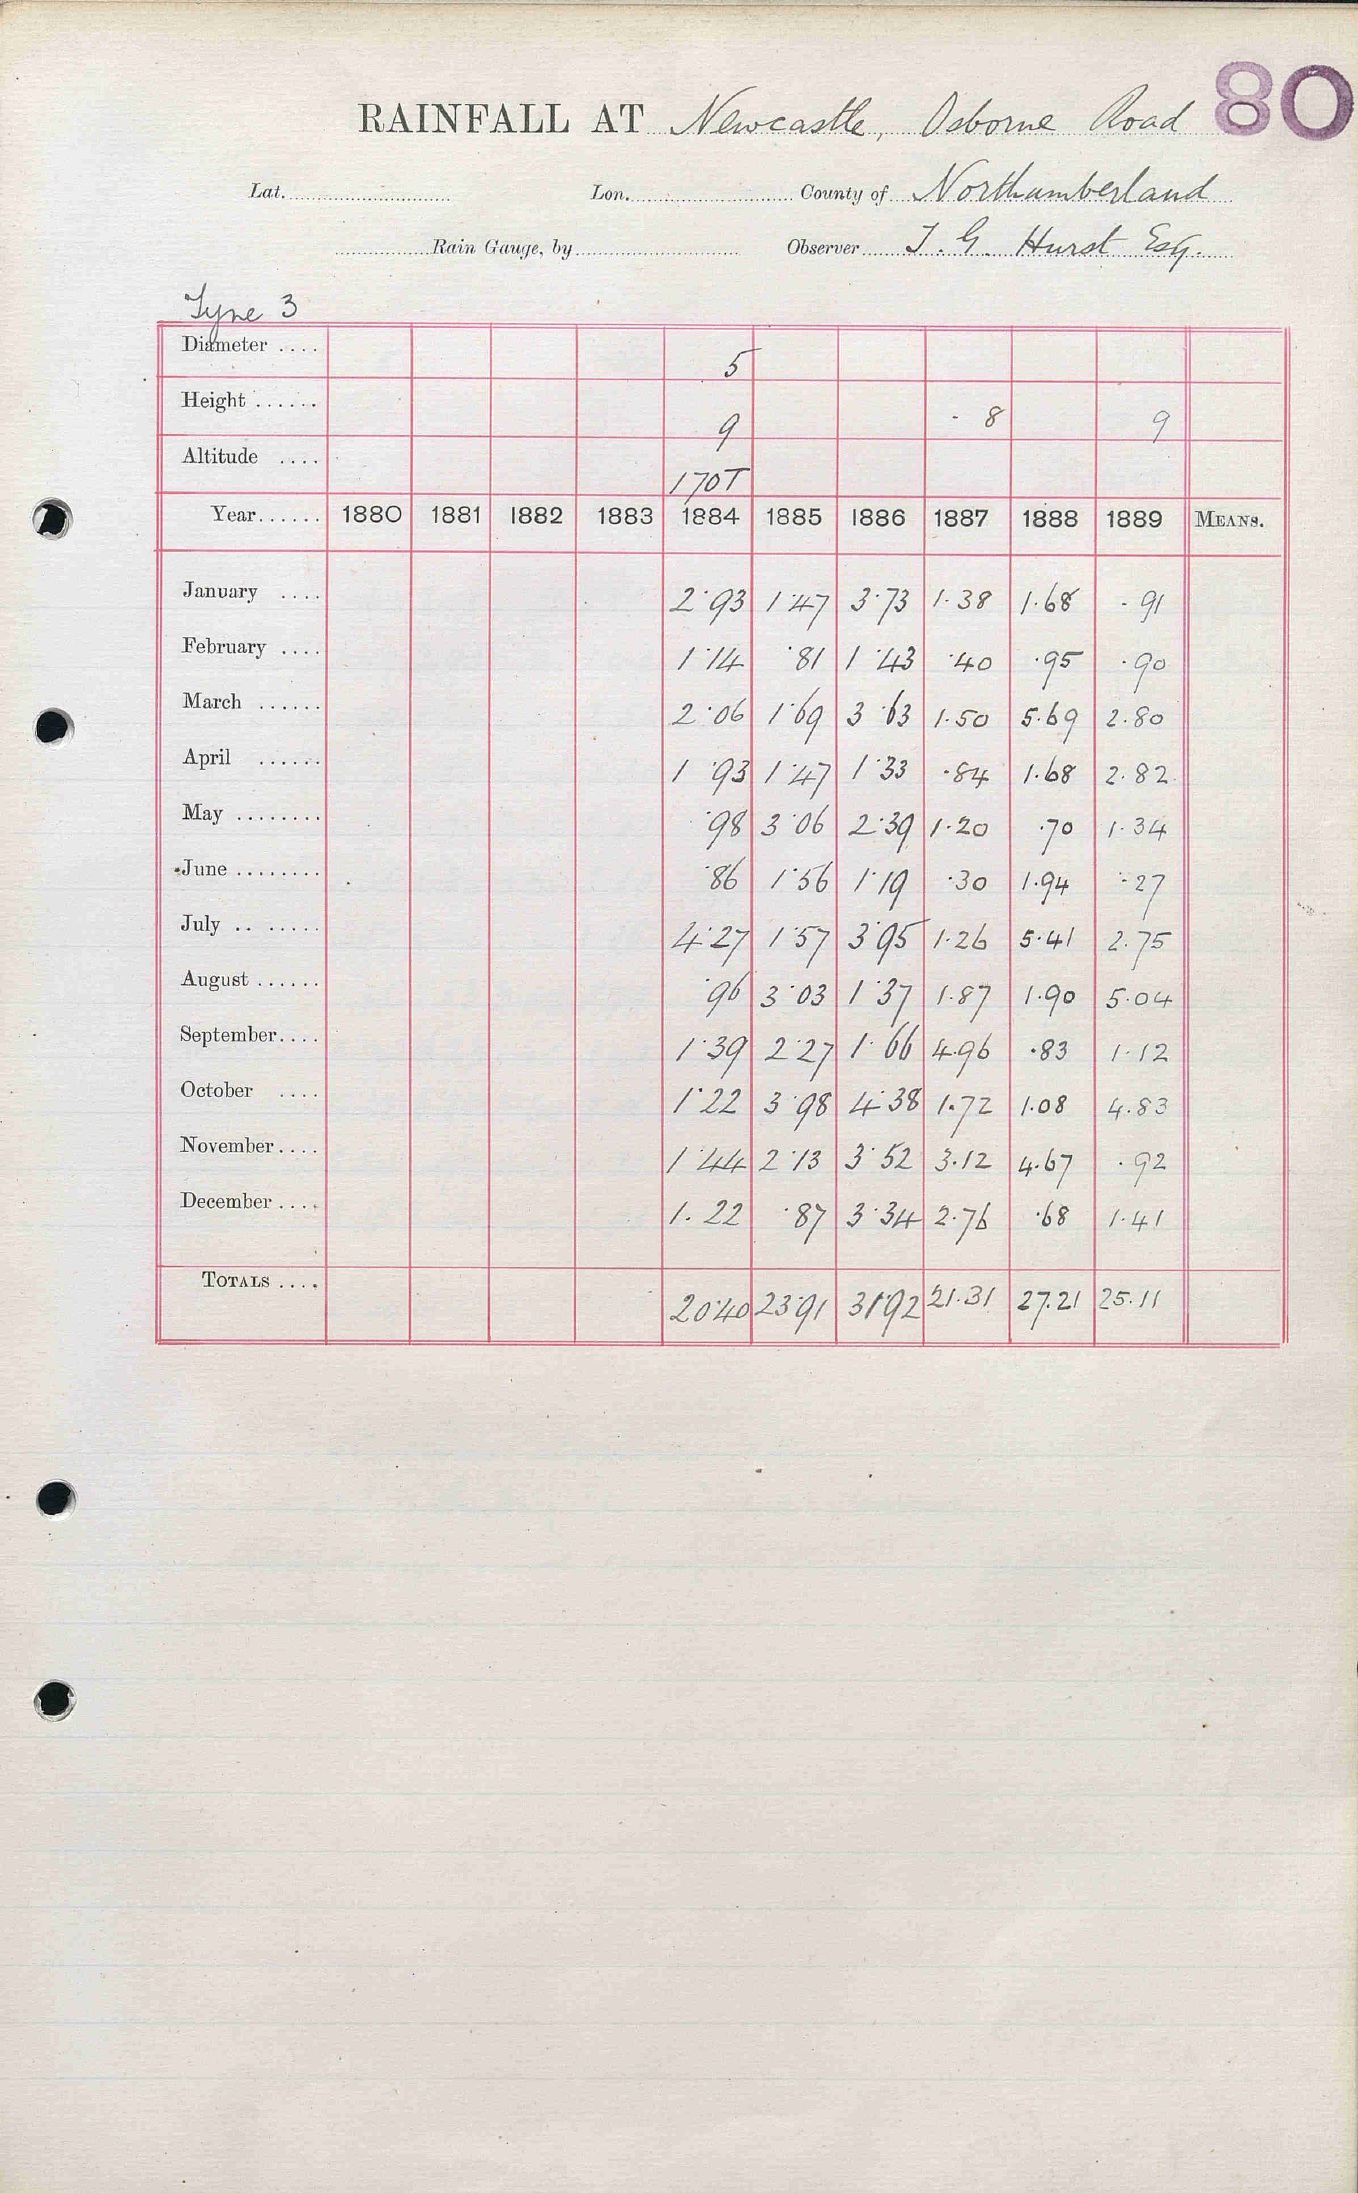 80
RAINFALL AT Newcastle, Osborne Road
Lat. Lon. County of Northumberland
Rain Gauge, by Observer T. G. Hurst Esq.
Tyne 3
Diameter .... 5
Height ...... 9 - 8 9
Altitude .... 170T
Year...... 1880 1881 1882 1883 1884 1885 1886 1887 1888 1889 MEANS.
January .... 2·93 1·47 3·73 1·38 1·68 ·91
February .... 1·14 ·81 1·43 ·40 ·95 ·90
March ...... 2·06 1·69 3·63 1·50 5·69 2·80
April ...... 1·93 1·47 1·33 ·84 1·68 2·82
May ........ ·98 3·06 2·39 1·20 ·70 1·34
June ........ ·86 1·56 1·19 ·30 1·94 ·27
July .. ..... 4·27 1·57 3·95 1·26 5·41 2·75
August ...... ·96 3·03 1·37 1·87 1·90 5·04
September.... 1·39 2·27 1·66 4·96 ·83 1·12
October .... 1·22 3·98 4·38 1·72 1·08 4·83
November.... 1·44 2·13 3·52 3·12 4·67 ·92
December .... 1·22 ·87 3·34 2·76 ·68 1·41
TOTALS .... 20·40 23·91 31·92 21·31 27·21 25·11